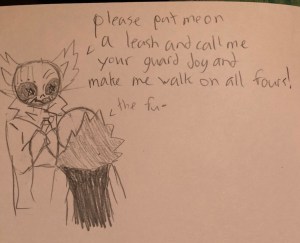 please put me on
a leash and call me
your guard dog and
make me walk on all fours!
the fu-